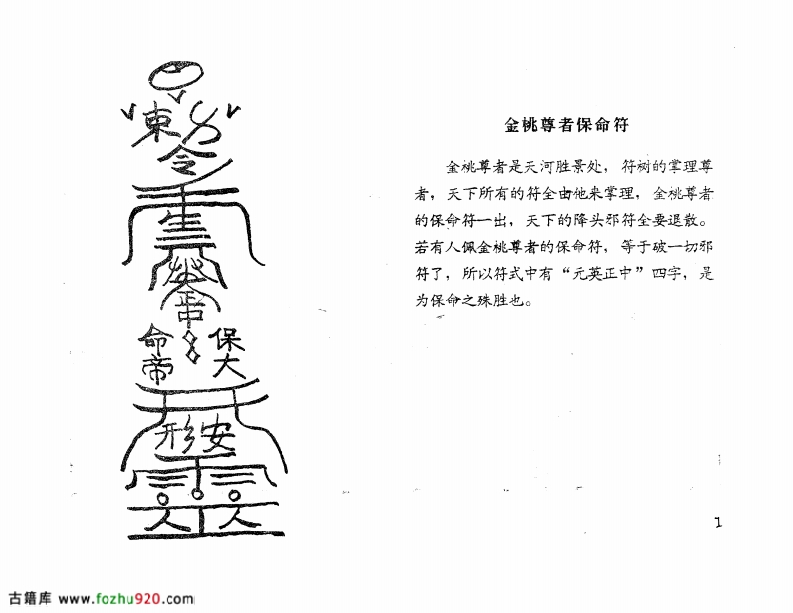 東
令
命 保
帝 大
形 安
人 人
金桃尊者保命符
金桃尊者是天河胜景处，符树的掌理尊
者，天下所有的符全由他来掌理，金桃尊者
的保命符一出，天下的降头邪符全要退散。
若有人佩金桃尊者的保命符，等于破一切邪
符了，所以符式中有“元英正中”四字，是
为保命之殊胜也。
1
古籍库 www.fozhu920.com